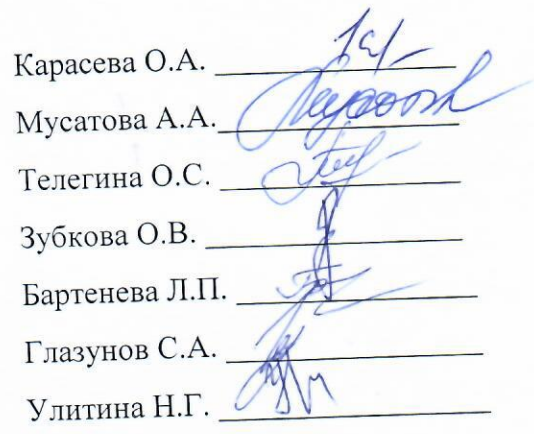 Карасева О.А.
Мусатова А.А.
Телегина О.С.
Зубкова О.В.
Бартенева Л.П.
Глазунов С.А.
Улитина Н.Г.